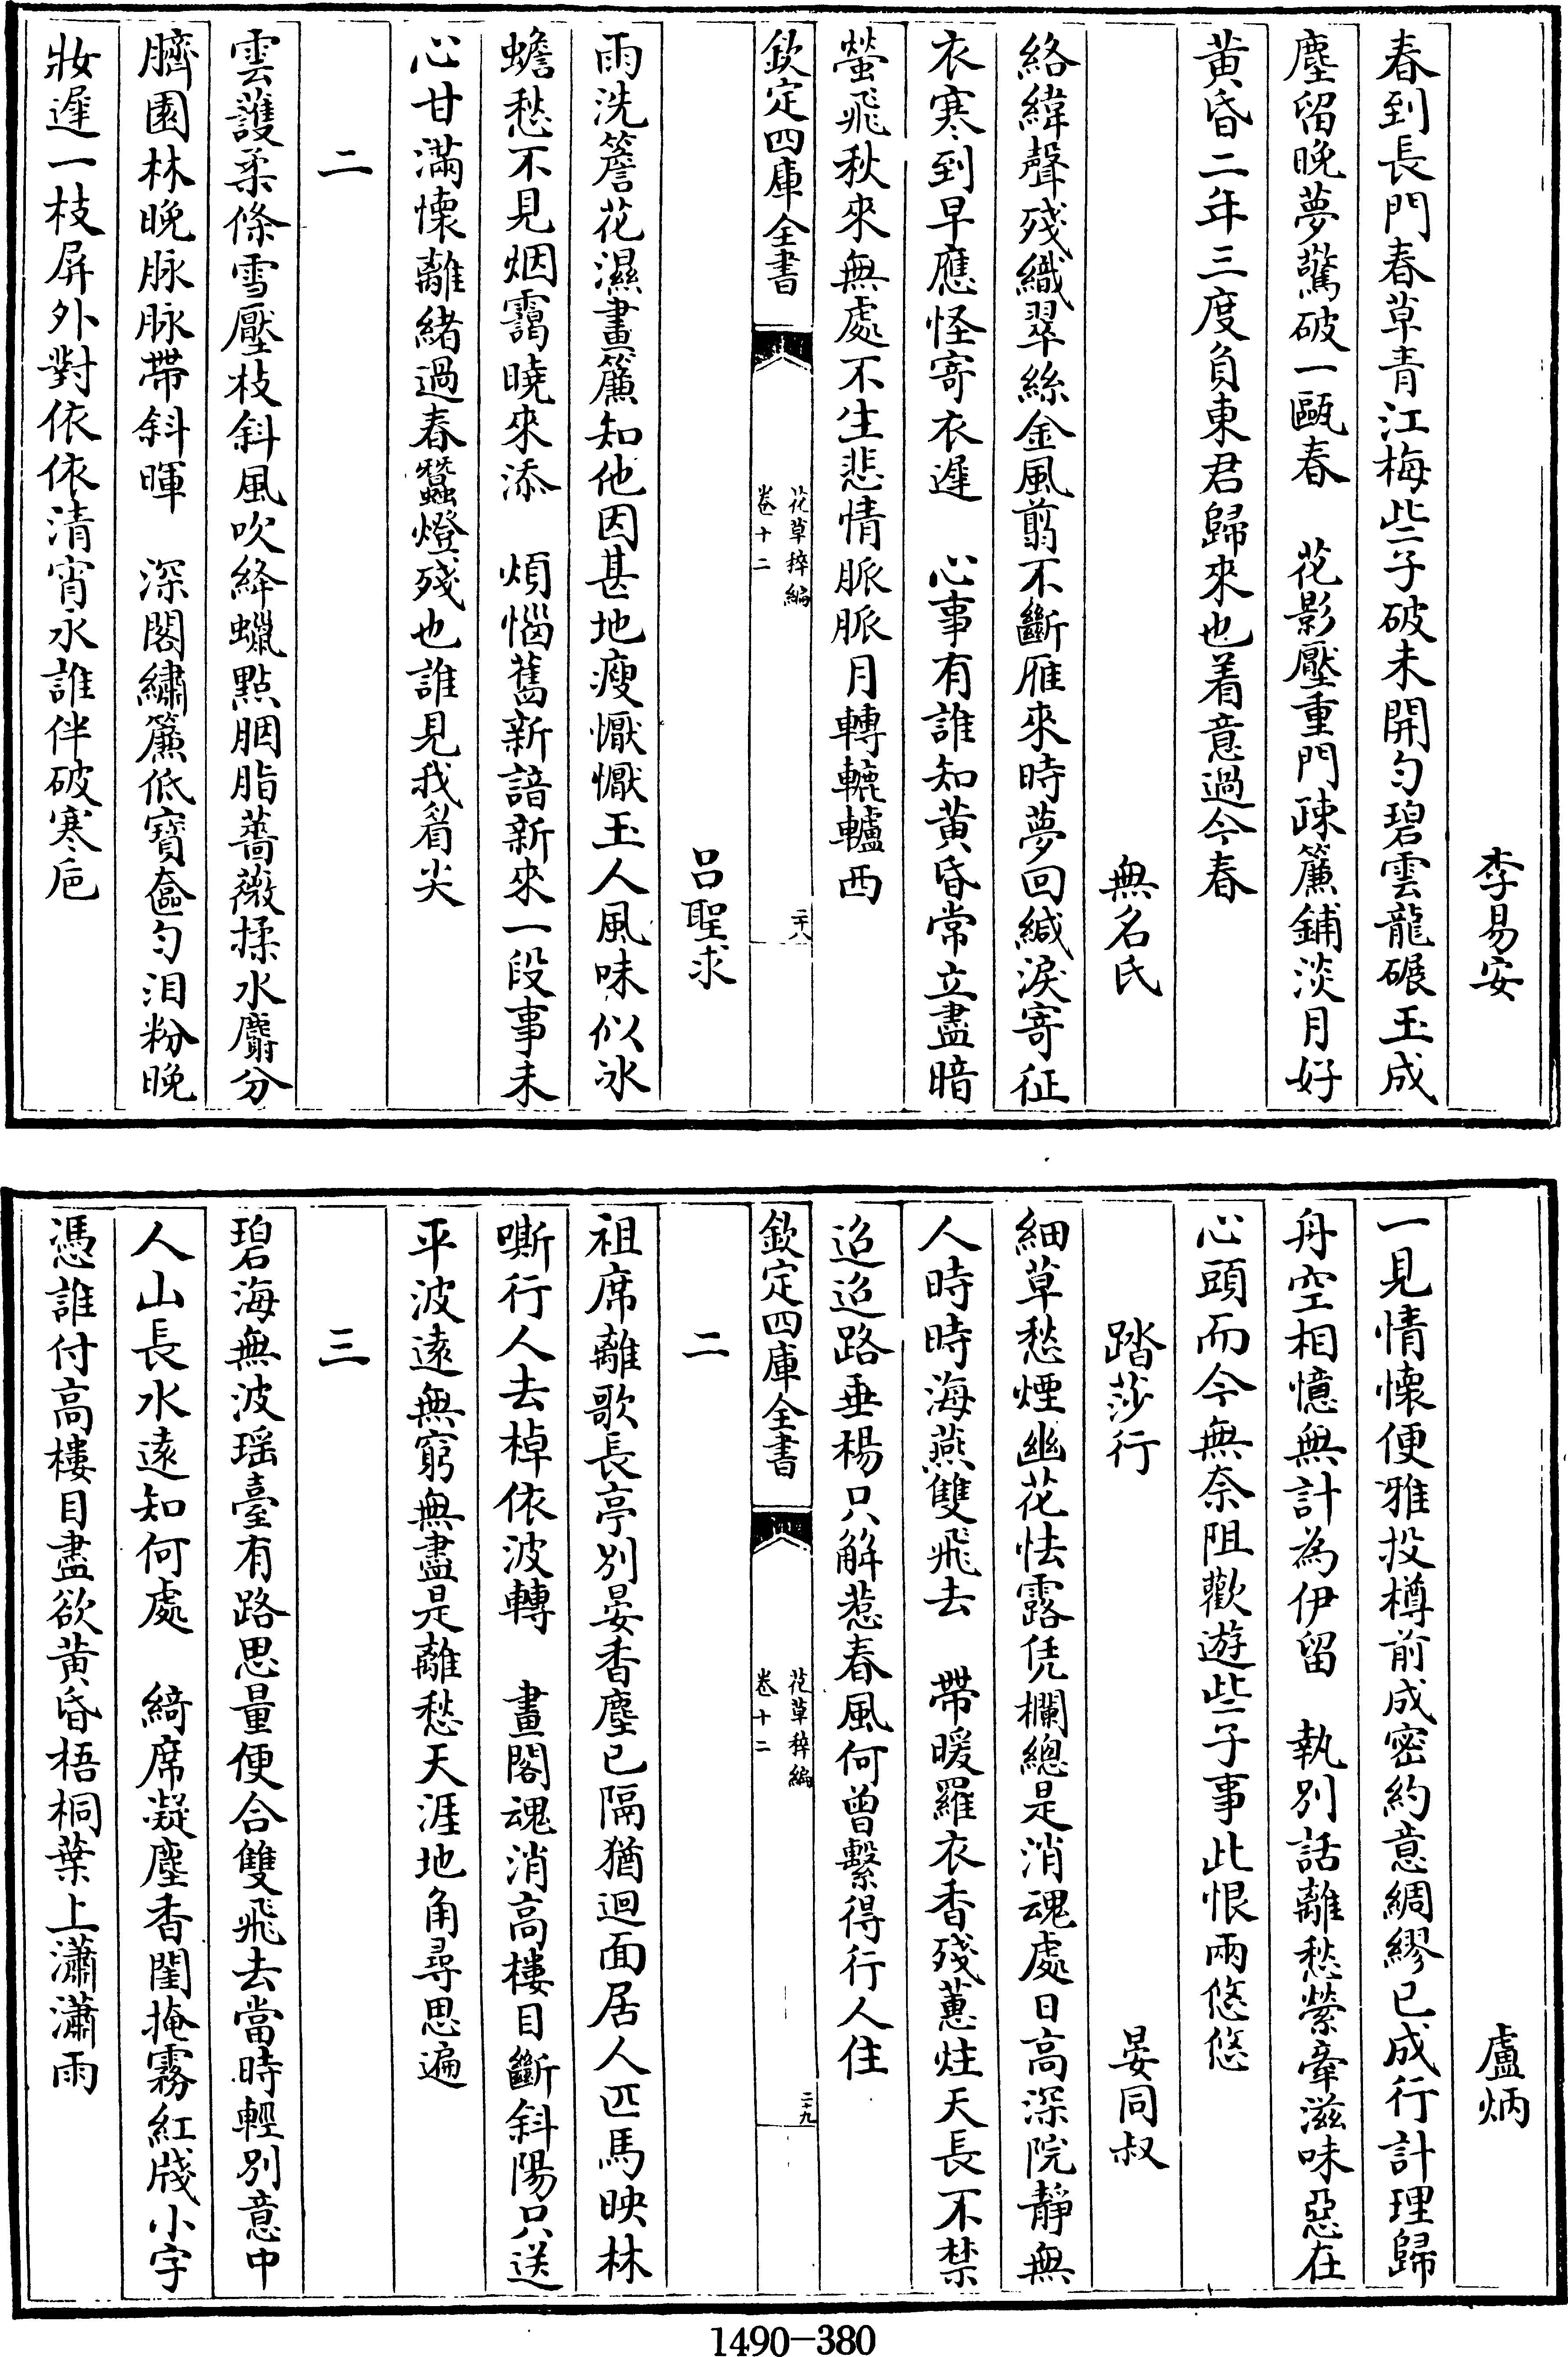 李易安
春到長門春草青江梅些子破未開勻碧雲龍碾玉成
塵留晚夢驚破一甌春　花影壓重門疎簾鋪淡月好
黄昏二年三度負東君歸來也着意過今春
無名氏
絡緯聲殘織翠絲金風翦不斷雁來時夢回緘淚寄征
衣寒到早應怪寄衣遲　心事有誰知黄昏常立盡暗
螢飛秋來無處不生悲情脈脈月轉轆轤西
欽定四庫全書
花草稡編
卷十二
二十八
呂聖求
雨洗簷花濕畫簾知他因甚地瘦懨懨玉人風味似冰
蟾愁不見烟靄曉來添　煩惱舊新諳新來一段事未
心甘滿懷離緒過春蠶燈殘也誰見我眉尖
二
雲護柔條雪壓枝斜風吹絳蠟點胭脂薔薇揉水麝分
臍園林晚脉脉帶斜暉　深閣繡簾低寶奩勻泪粉晚
妝遲一枝屏外對依依清宵永誰伴破寒卮
盧炳
一見情懷便雅投樽前成密約意綢繆已成行計理歸
舟空相憶無計為伊留　執別話離愁縈牽滋味惡在
心頭而今無奈阻歡遊些子事此恨兩悠悠
踏莎行
晏同叔
細草愁煙幽花怯露凭欄總是消魂處日高深院靜無
人時時海燕雙飛去　帶暖羅衣香殘蕙炷天長不禁
迢迢路垂楊只解惹春風何曾繫得行人住
欽定四庫全書
花草稡編
卷十二
二十九
二
祖席離歌長亭別宴香塵已隔猶迴面居人匹馬映林
嘶行人去棹依波轉　畫閣魂消高樓目斷斜陽只送
平波遠無窮無盡是離愁天涯地角尋思遍
三
碧海無波瑶臺有路思量便合雙飛去當時輕別意中
人山長水遠知何處　綺席凝塵香閨掩霧紅牋小字
憑誰付高樓目盡欲黄昏梧桐葉上瀟瀟雨
1490-380